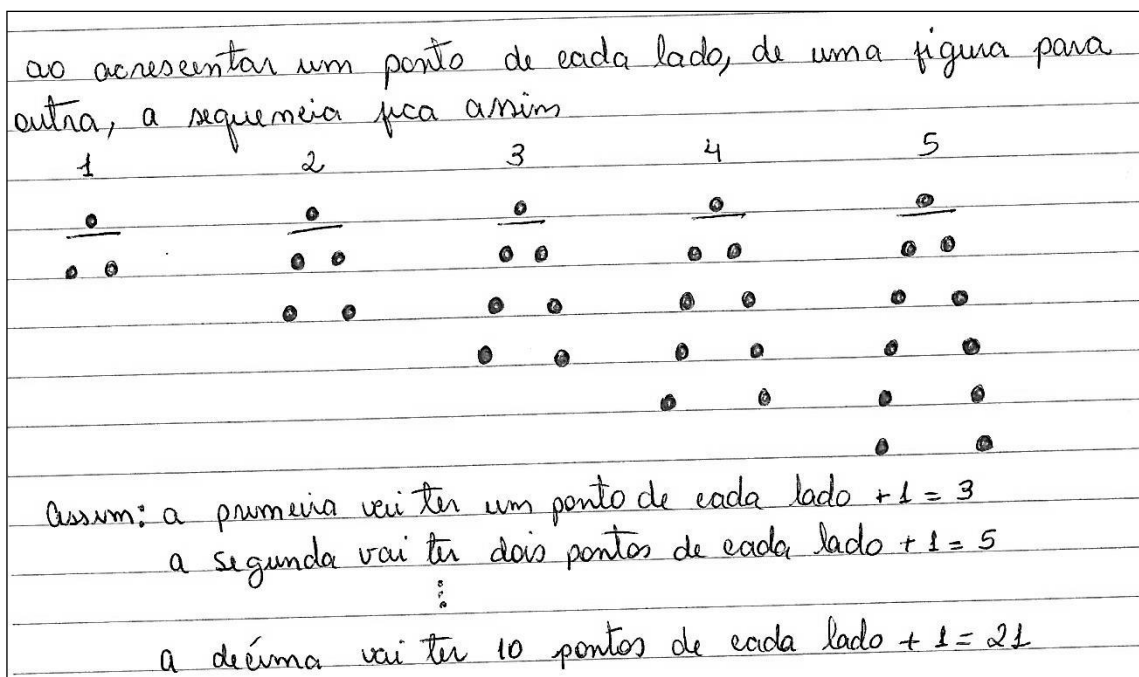 ao acrescentar um ponto de cada lado, de uma figura para
outra, a sequencia fica assim
1 2 3 4 5
Assim: a primeira vai ter um ponto de cada lado + 1 = 3
a segunda vai ter dois pontos de cada lado + 1 = 5
⋮
a décima vai ter 10 pontos de cada lado + 1 = 21